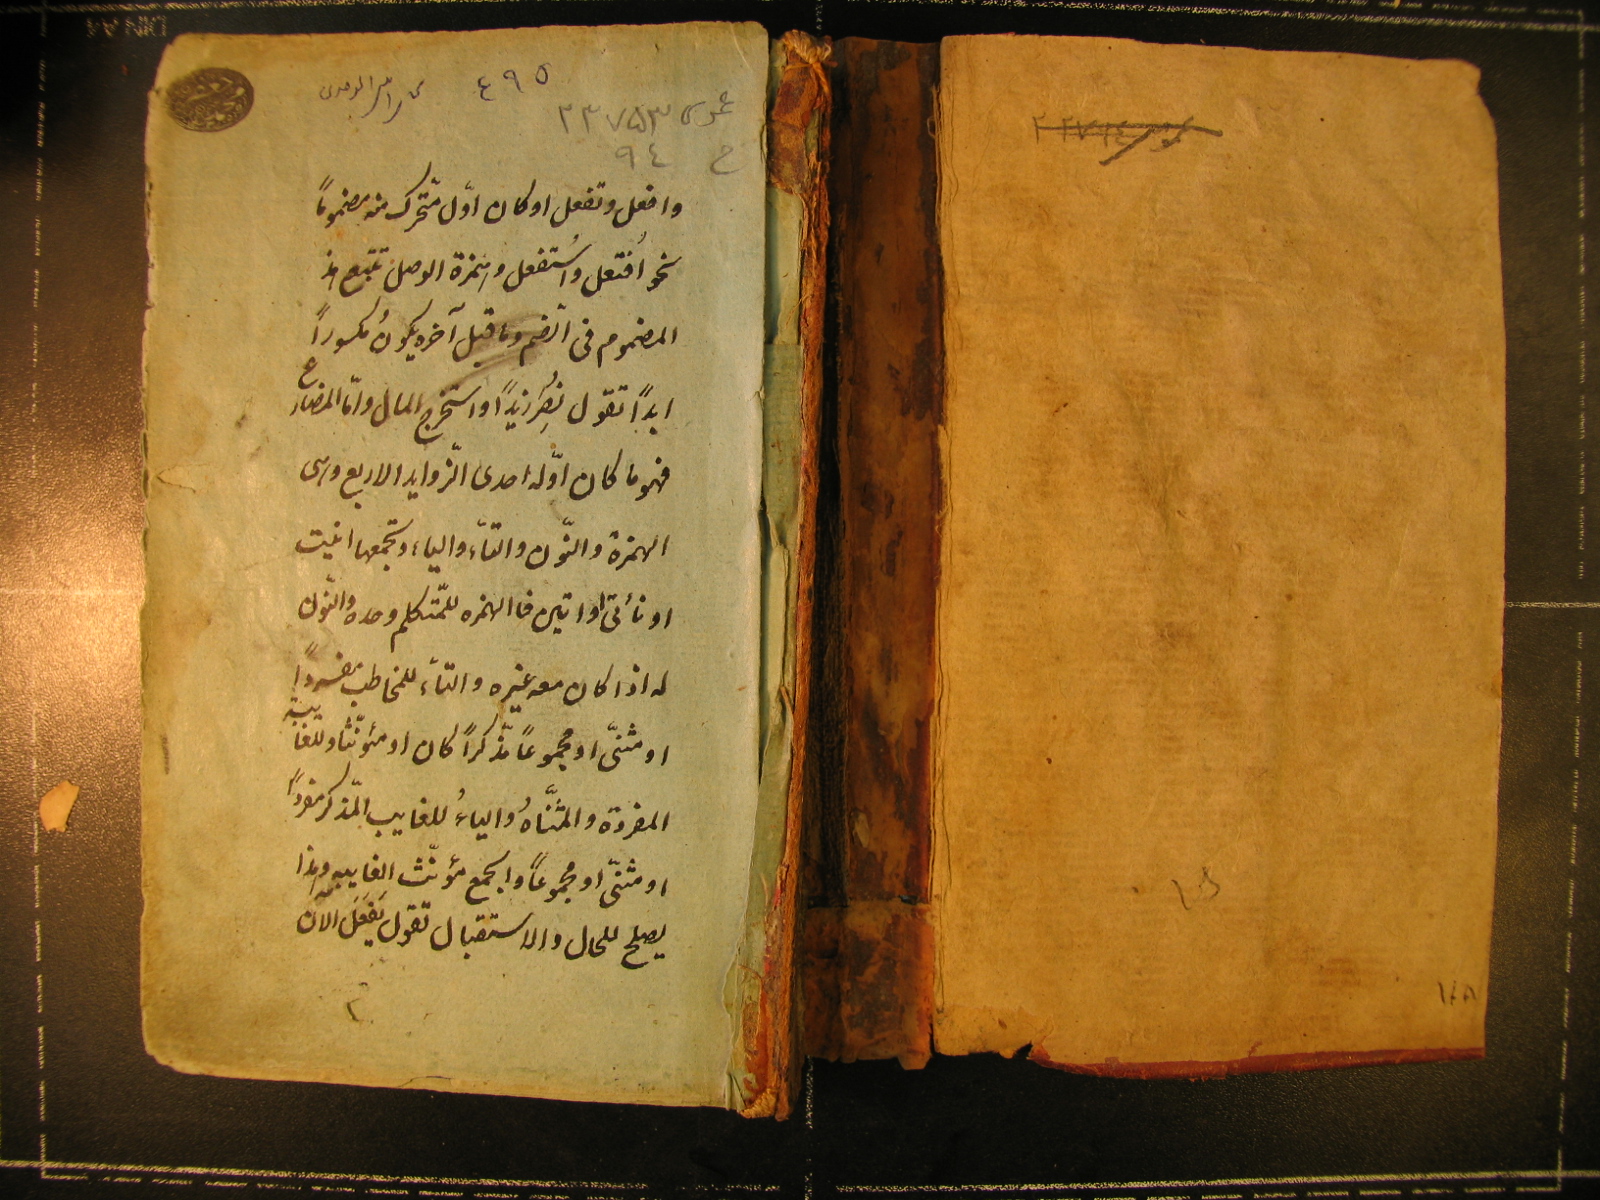 ٤٩٥
عمومى ٢٢٧٥٣
ح ٩٤
وافعل وتفعل او كان اوّل متّحرك منه مضموماً
نحو اُفتعل واُستفعل وهمزة الوصل تتبع هذ
المضموم فى الّضم وما قبل آخره يكونُ مكسوراً
ابداً تقول نُصِرَ زيداً واستخرج المال وامّا المضارع
فهو ما كان اوّله احدى الّزوايد الاربع وهى
الهمزة والنّون والتاء والياء وتجمعها انيت
او نأتى اواتين فاالهمزه للمّتكلم وحده والنّون
له اذا كان معه غيره والتاء للمخاطب مفرداً
او مثنىّ او مجموعاً مّذكراً كان او مئونّثا وللغايبة
المفردة والمثنَّاهُ والياءُ للغايب المّذكر مفرداً
او مثنىّ او مجموعاً والجمع مؤنّث الغايبه وهذا
يصلح للحال والاستقبال تقول يَفعَلُ الآن
٢
١٤٨